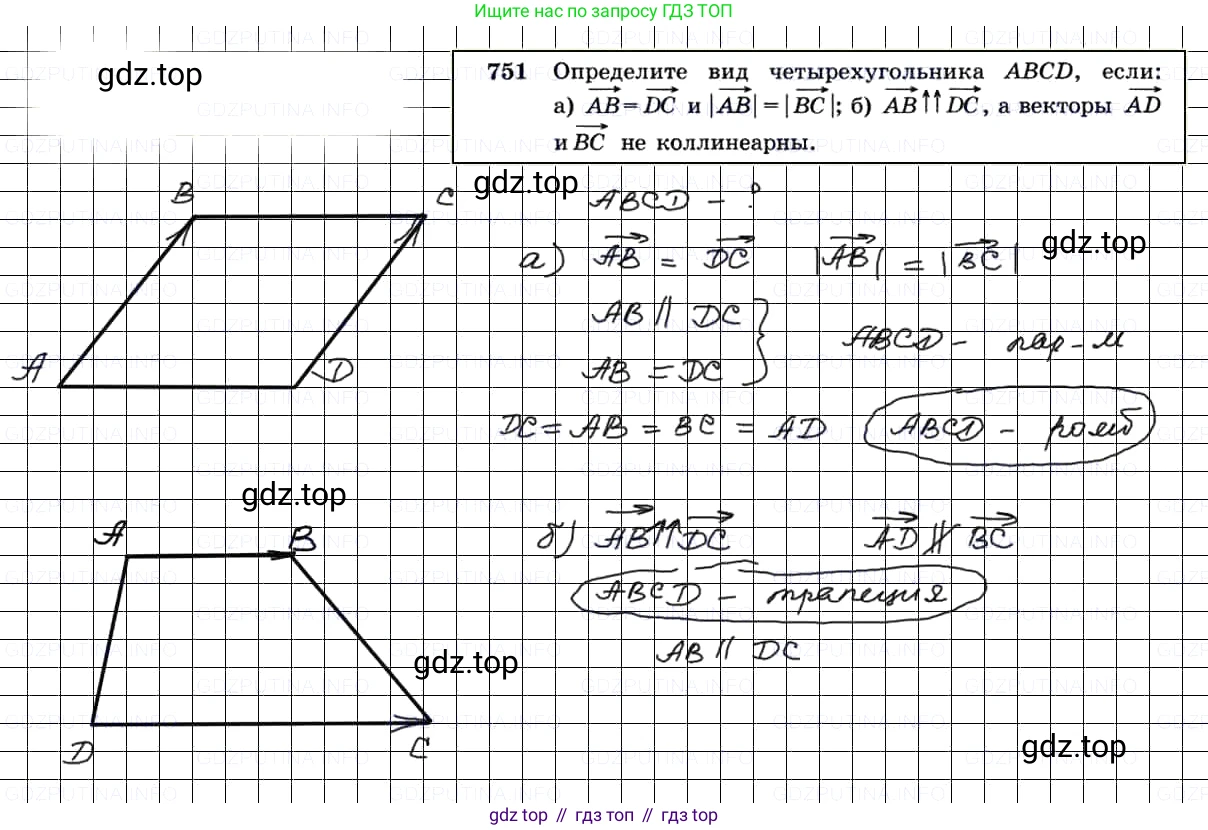 Ищите нас по запросу ГДЗ ТОП
GDZPUTINA.INFO
gdz.top
751 Определите вид четырехугольника ABCD, если:
а) AB = DC и |AB| = |BC|; б) AB ↑↑ DC, а векторы AD
и BC не коллинеарны.
gdz.top
ABCD - ?
B
C
gdz.top
а) AB = DC |AB| = |BC|
AB || DC
ABCD - пар-м
A
D
AB = DC
DC = AB = BC = AD ABCD - ромб
gdz.top
A
B
б) AB ↑↑ DC AD ∦ BC
ABCD - трапеция
AB || DC
gdz.top
D
C
gdz.top
gdz top // гдз топ // gdz top